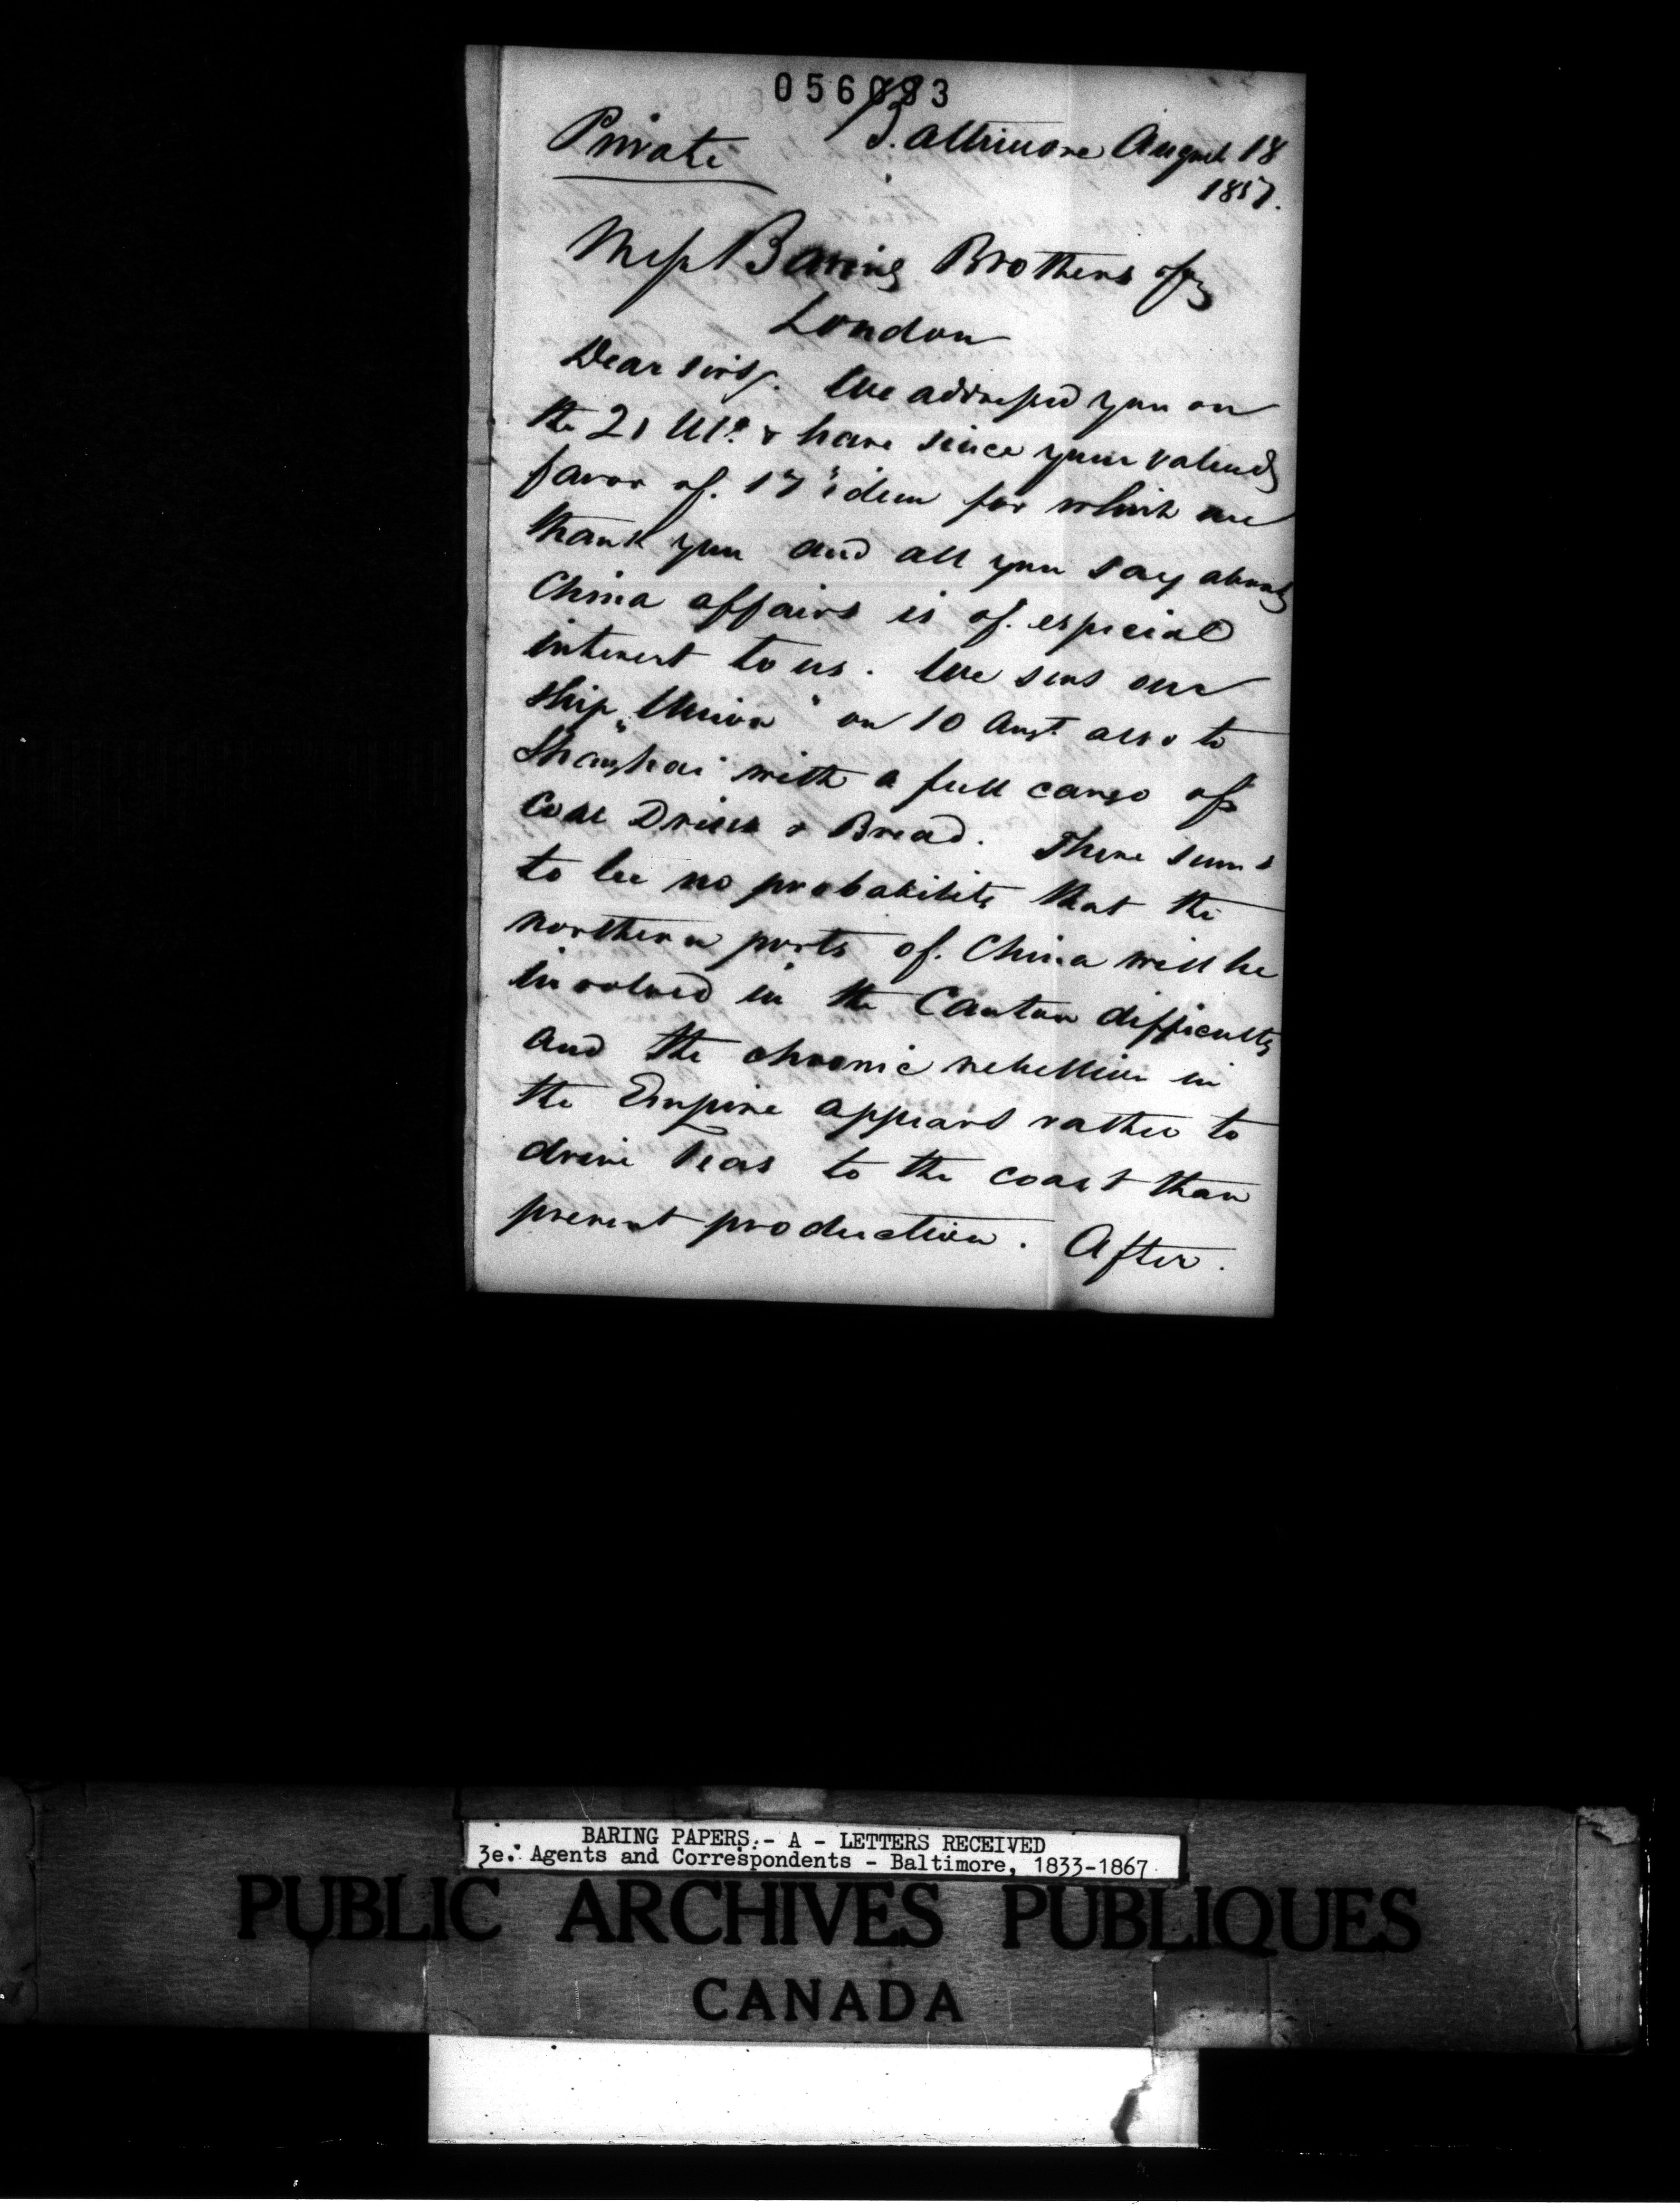 056093
Private Baltimore August 18
1857.
Messrs Baring Brothers & Co
London
Dear Sirs, We addressed you on
the 21 Ulto. & have since your valued
favor of 17 idem for which we
thank you and all you say about
China affairs is of especial
interest to us. We send our
ship "Union" on 10 Augt. also to
Shanghai with a full cargo of
Coal & Bread. There seems
to be no probability that the
northern ports of China will be
involved in the Canton difficulty
and the chronic rebellion in
the Empire appears rather to
drive Teas to the coast than
prevent production. After.
BARING PAPERS.- A - LETTERS RECEIVED
3e. Agents and Correspondents - Baltimore, 1833-1867
PUBLIC ARCHIVES PUBLIQUES
CANADA